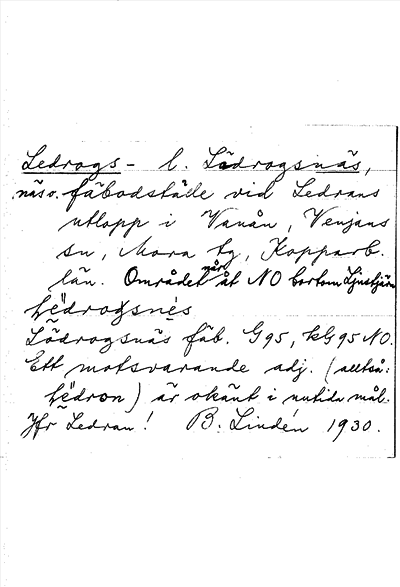 Ledrogs- l. Lödrogsnäs,
näs o. fäbodställe vid Ledrans
utlopp i Vanån, Venjans
sn, Mora tg, Kopparb.
län. Området når åt NO bortom Ljustjärn
lèdrogsnẹs
Lödrogsnäs fäb. G95, kG95NO.
Ett motsvarande adj. (alltså:
lèdron) är okänt i nutida mål.
Jfr Ledran! B. Lindén 1930.